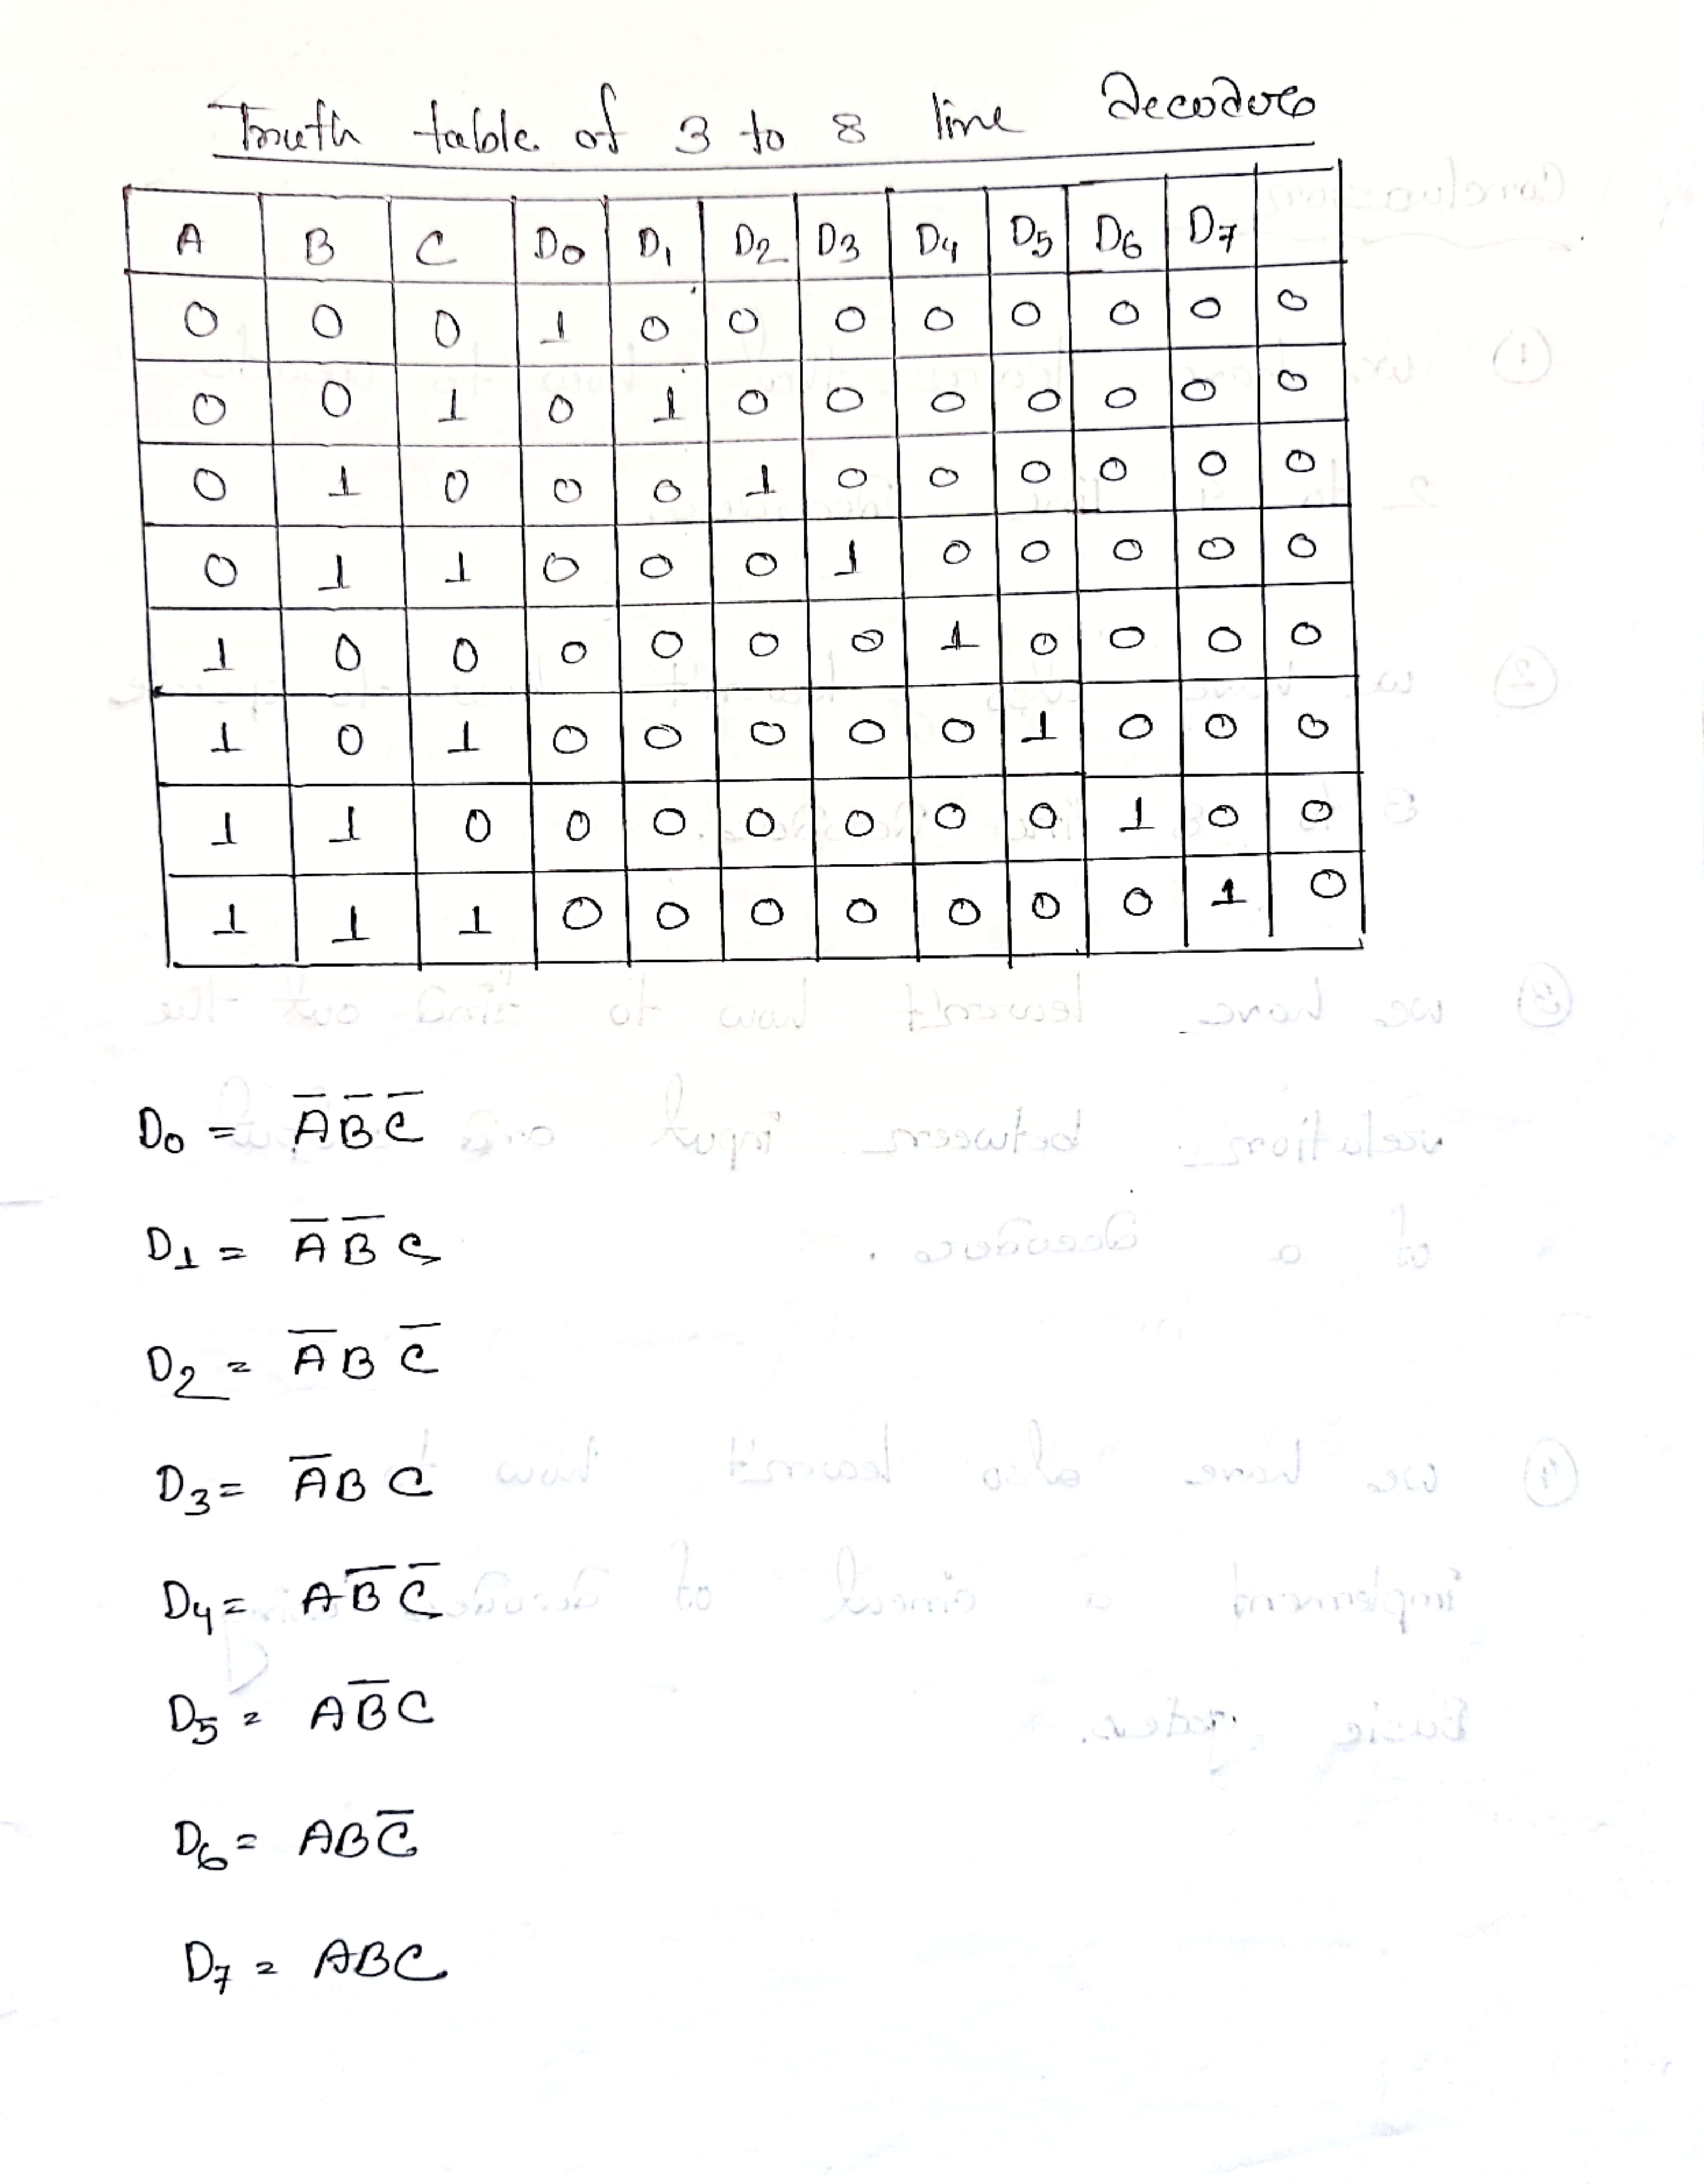 Truth table of 3 to 8 line decoder
A B C D0 D1 D2 D3 D4 D5 D6 D7
0 0 0 1 0 0 0 0 0 0 0 0
0 0 1 0 1 0 0 0 0 0 0 0
0 1 0 0 0 1 0 0 0 0 0 0
0 1 1 0 0 0 1 0 0 0 0 0
1 0 0 0 0 0 0 1 0 0 0 0
1 0 1 0 0 0 0 0 1 0 0 0
1 1 0 0 0 0 0 0 0 1 0 0
1 1 1 0 0 0 0 0 0 0 1 0
D0 = A̅ B̅ C̅
D1 = A̅ B̅ C
D2 = A̅ B C̅
D3 = A̅ B C
D4 = A B̅ C̅
D5 = A B̅ C
D6 = A B C̅
D7 = A B C